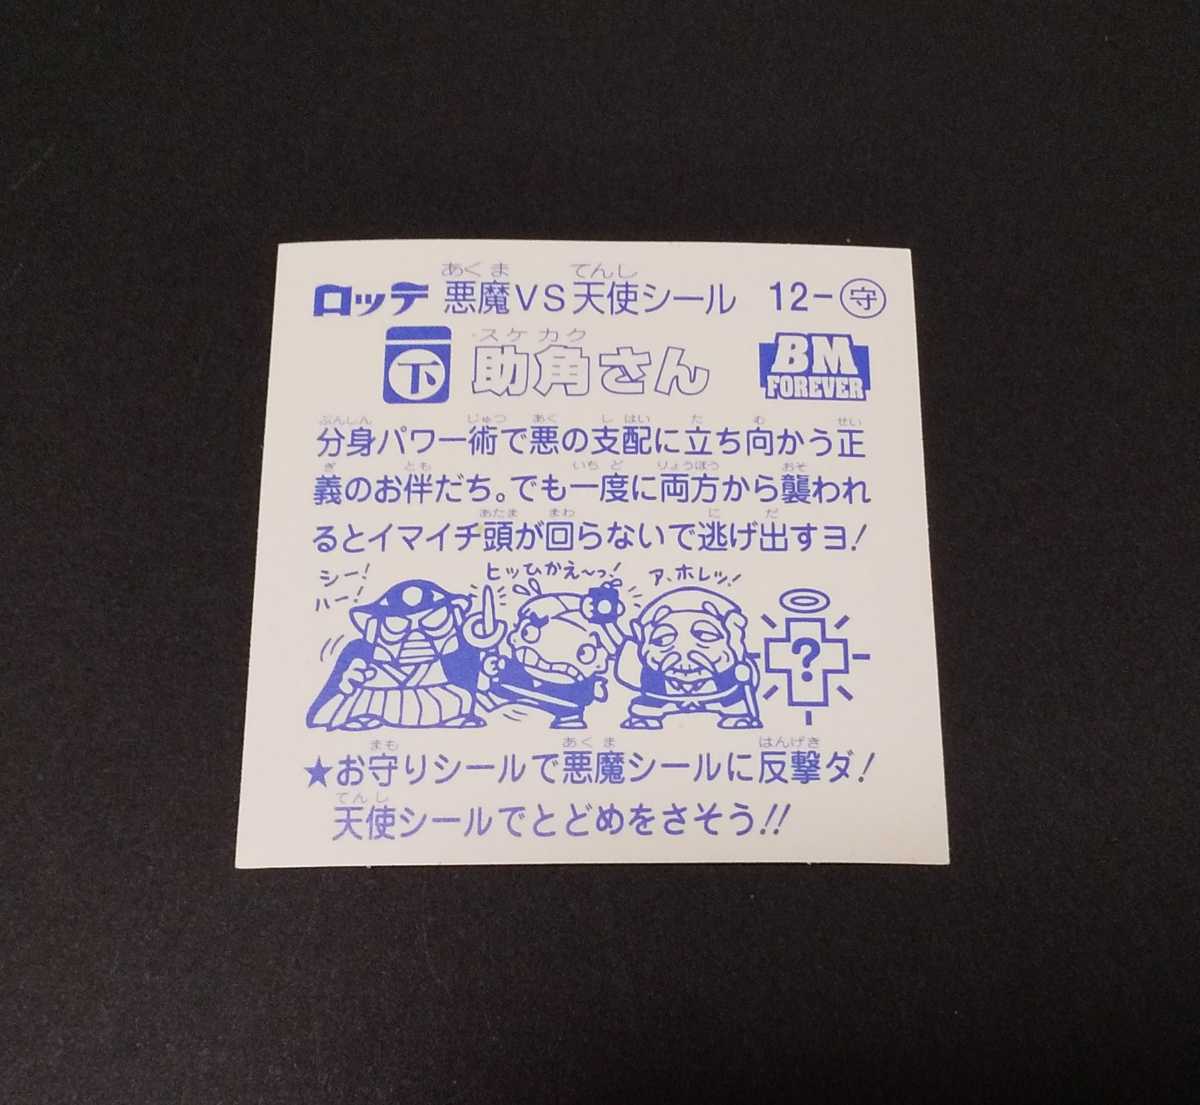 ロッテ 悪魔VS天使シール 12-守
下 助角さん BM FOREVER
分身パワー術で悪の支配に立ち向かう正
義のお伴だち。でも一度に両方から襲われ
るとイマイチ頭が回らないで逃げ出すヨ!
シー!
ハー!
ヒッひかえ〜っ!
ア、ホレッ!
?
★お守りシールで悪魔シールに反撃ダ!
天使シールでとどめをさそう!!